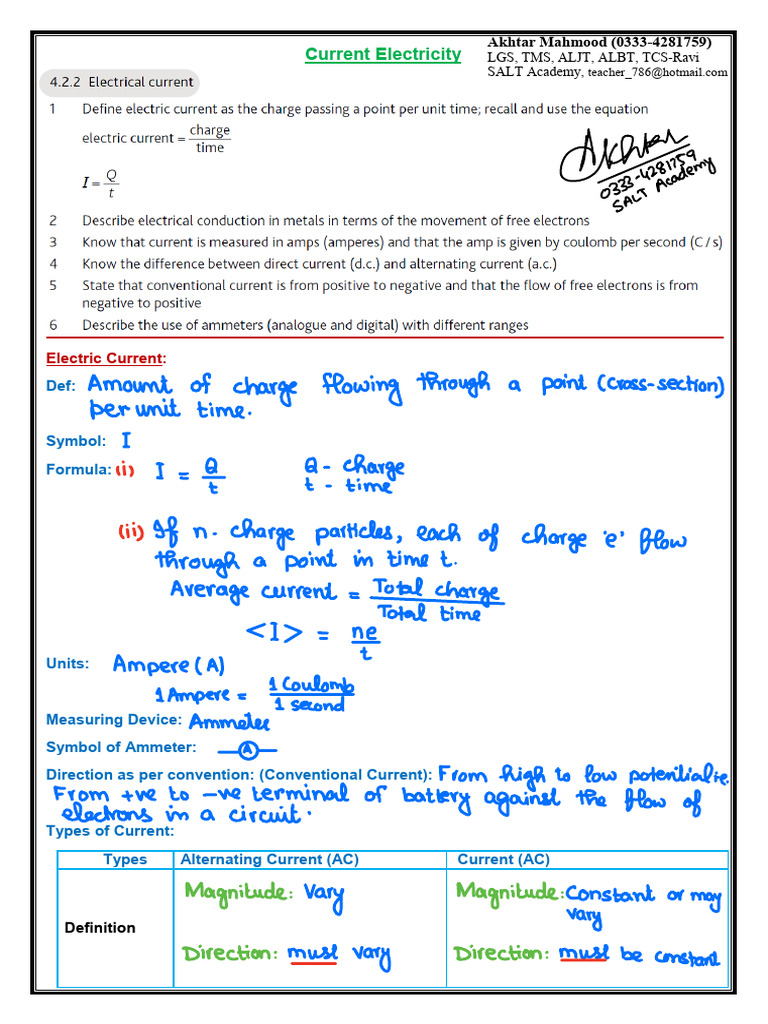 Current Electricity
Akhtar Mahmood (0333-4281759)
LGS, TMS, ALJT, ALBT, TCS-Ravi
SALT Academy, teacher_786@hotmail.com
4.2.2 Electrical current
1 Define electric current as the charge passing a point per unit time; recall and use the equation
electric current = charge / time
I = Q / t
Akhtar
0333-4281759
SALT Academy
2 Describe electrical conduction in metals in terms of the movement of free electrons
3 Know that current is measured in amps (amperes) and that the amp is given by coulomb per second (C / s)
4 Know the difference between direct current (d.c.) and alternating current (a.c.)
5 State that conventional current is from positive to negative and that the flow of free electrons is from
negative to positive
6 Describe the use of ammeters (analogue and digital) with different ranges
Electric Current:
Def: Amount of charge flowing through a point (cross-section)
per unit time.
Symbol: I
Formula: (i) I = Q / t Q - charge
t - time
(ii) If n. charge particles, each of charge 'e' flow
through a point in time t.
Average current = Total charge / Total time
<I> = ne / t
Units: Ampere (A)
1 Ampere = 1 Coulomb / 1 second
Measuring Device: Ammeter
Symbol of Ammeter: A
Direction as per convention: (Conventional Current): From high to low potential i.e.
From +ve to -ve terminal of battery against the flow of
electrons in a circuit.
Types of Current:
Types Alternating Current (AC) Current (AC)
Definition
Magnitude: Vary
Direction: must vary
Magnitude: Constant or may
vary
Direction: must be constant